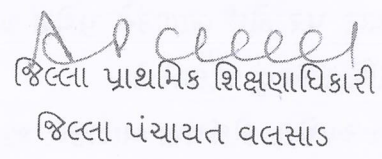 જિલ્લા પ્રાથમિક શિક્ષણાધિકારી
જિલ્લા પંચાયત વલસાડ